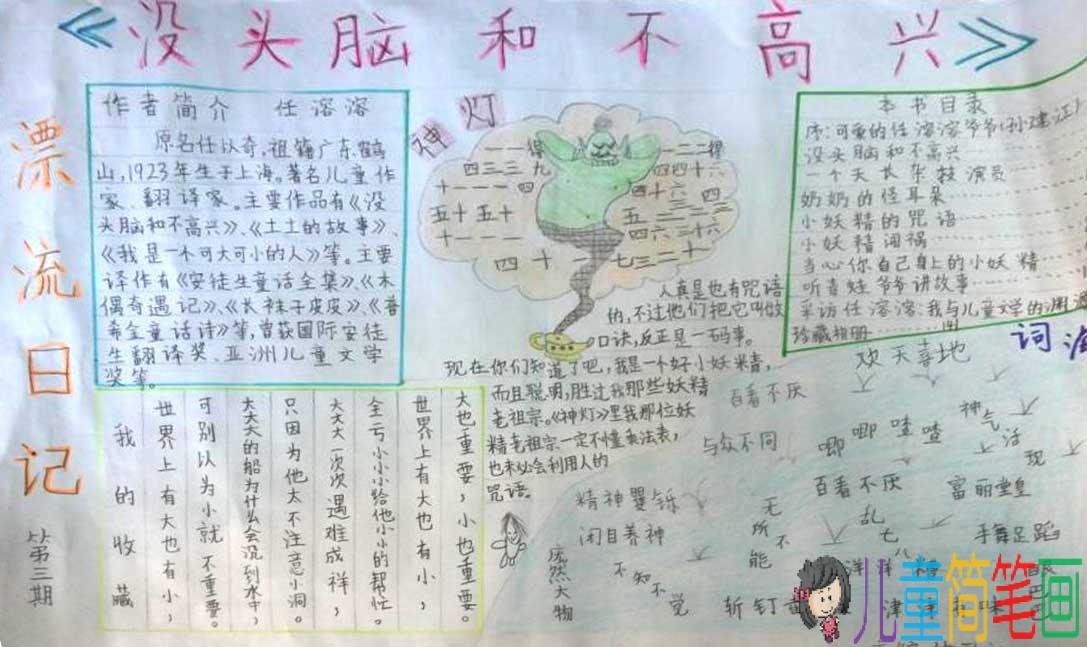 《没头脑和不高兴》
漂流日记
第三期
作者简介 任溶溶
原名任以奇,祖籍广东鹤
山,1923年生于上海,著名儿童作
家、翻译家。主要作品有《没
头脑和不高兴》、《土土的故事》、
《我是一个可大可小的人》等。主要
译作有《安徒生童话全集》、《木
偶奇遇记》、《长袜子皮皮》、《普
希金童话诗》等,曾获国际安徒
生翻译奖、亚洲儿童文学
奖等。
神灯
一一得
四三三九
十一一一四
五十五十
十一一一
四十一七三二一
一二二得
四四十六
四十六
四六三十
人真是也有咒语
的,不过他们把它叫做
口诀,反正是一码事。
现在你们知道了吧,我是一个好小妖精,
而且聪明,胜过我那些妖精
老祖宗。《神灯》里我那位妖
精老祖宗一定不懂乘法表,
也未必会利用人的
咒语。
本书目录
序:可爱的任溶溶爷爷(孙建江)
没头脑和不高兴
一个天才杂技演员
奶奶的怪耳朵
小妖精的咒语
小妖精闹祸
当心你自己身上的小妖精
听青蛙爷爷讲故事
采访任溶溶:我与儿童文学的渊源
珍藏相册
我的收藏
世界上有大也有小,
可别以为小就不重要。
大大的船为什么会沉到水中,
只因为他太不注意小洞。
大大一次次遇难成祥,
全亏小小给他小小的帮忙。
世界上有大也有小,
大也重要,小也重要。
欢天喜地
百看不厌
与众不同
唧唧喳喳
神气
活
现
百看不厌
富丽堂皇
精神矍铄
闭目养神
无所不能
乱七八
手舞足蹈
庞然大物
不知不觉
斩钉
儿童简笔画